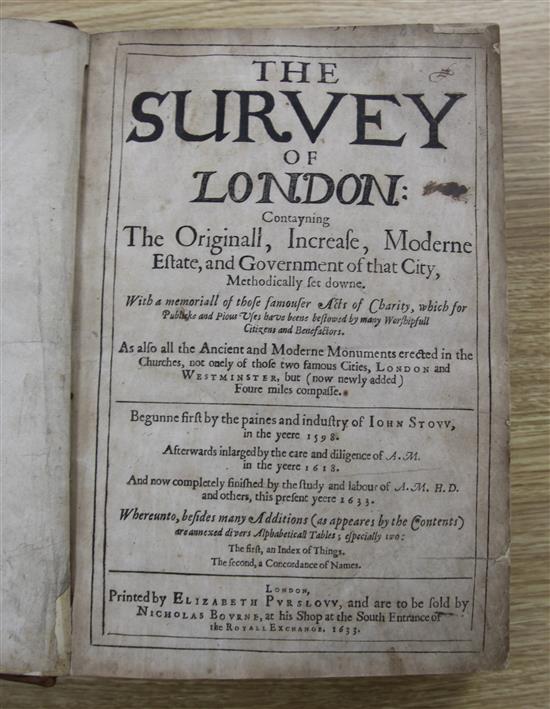 THE
SURVEY
OF
LONDON:
Contayning
The Originall, Increaſe, Moderne
Eſtate, and Government of that City,
Methodically ſet downe.
With a memoriall of thoſe famouſer Acts of Charity, which for
Publicke and Pious Vſes have beene beſtowed by many Worſhipfull
Citizens and Benefactors.
As alſo all the Ancient and Moderne Monuments erected in the
Churches, not onely of thoſe two famous Cities, LONDON and
WESTMINSTER, but (now newly added)
Foure miles compaſſe.
Begunne firſt by the paines and induſtry of IOHN STOVV,
in the yeere 1598.
Afterwards inlarged by the care and diligence of A.M.
in the yeere 1618.
And now completely finiſhed by the ſtudy and labour of A.M. H.D.
and others, this preſent yeere 1633.
Whereunto, beſides many Additions (as appeares by the Contents)
are annexed divers Alphabeticall Tables; eſpecially two:
The firſt, an Index of Things.
The ſecond, a Concordance of Names.
LONDON,
Printed by ELIZABETH PVRSLOVV, and are to be ſold by
NICHOLAS BOVRNE, at his Shop at the South Entrance of
the ROYALL EXCHANGE. 1633.